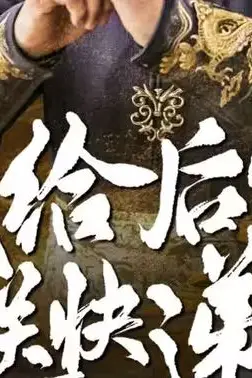 给后
朕快递